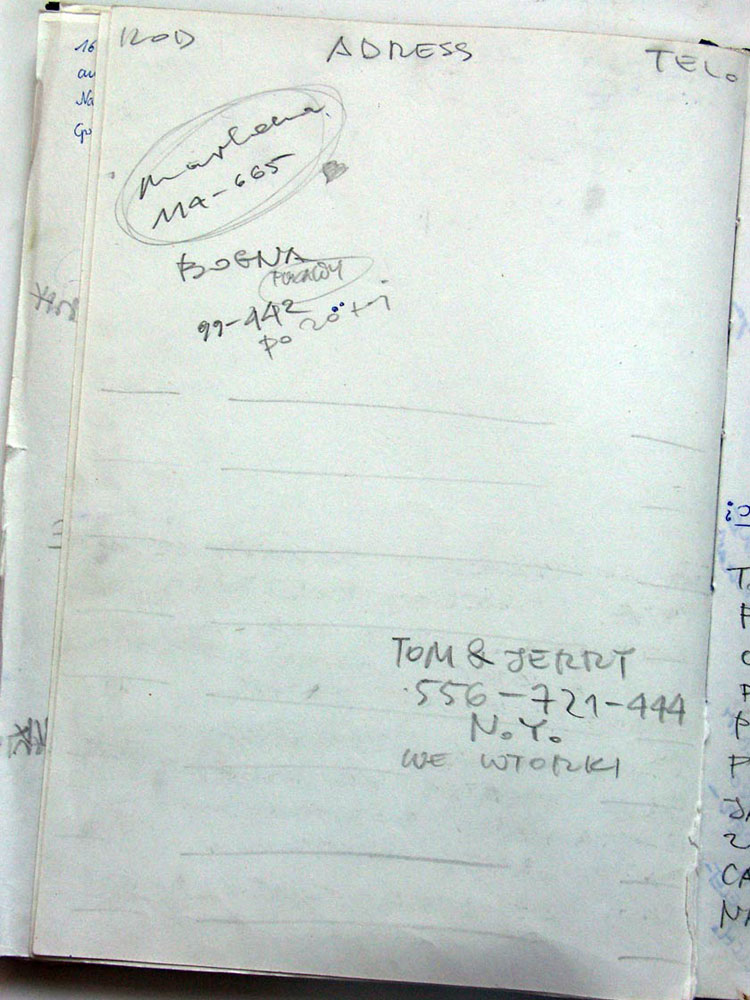 KOD ADRESS TEL.
Marlena
119-665
BOGNA
PUŁAWY
99-442
po 20-tej
TOM & JERRY
556-721-444
N.Y.
WE WTORKI
16
au
Na